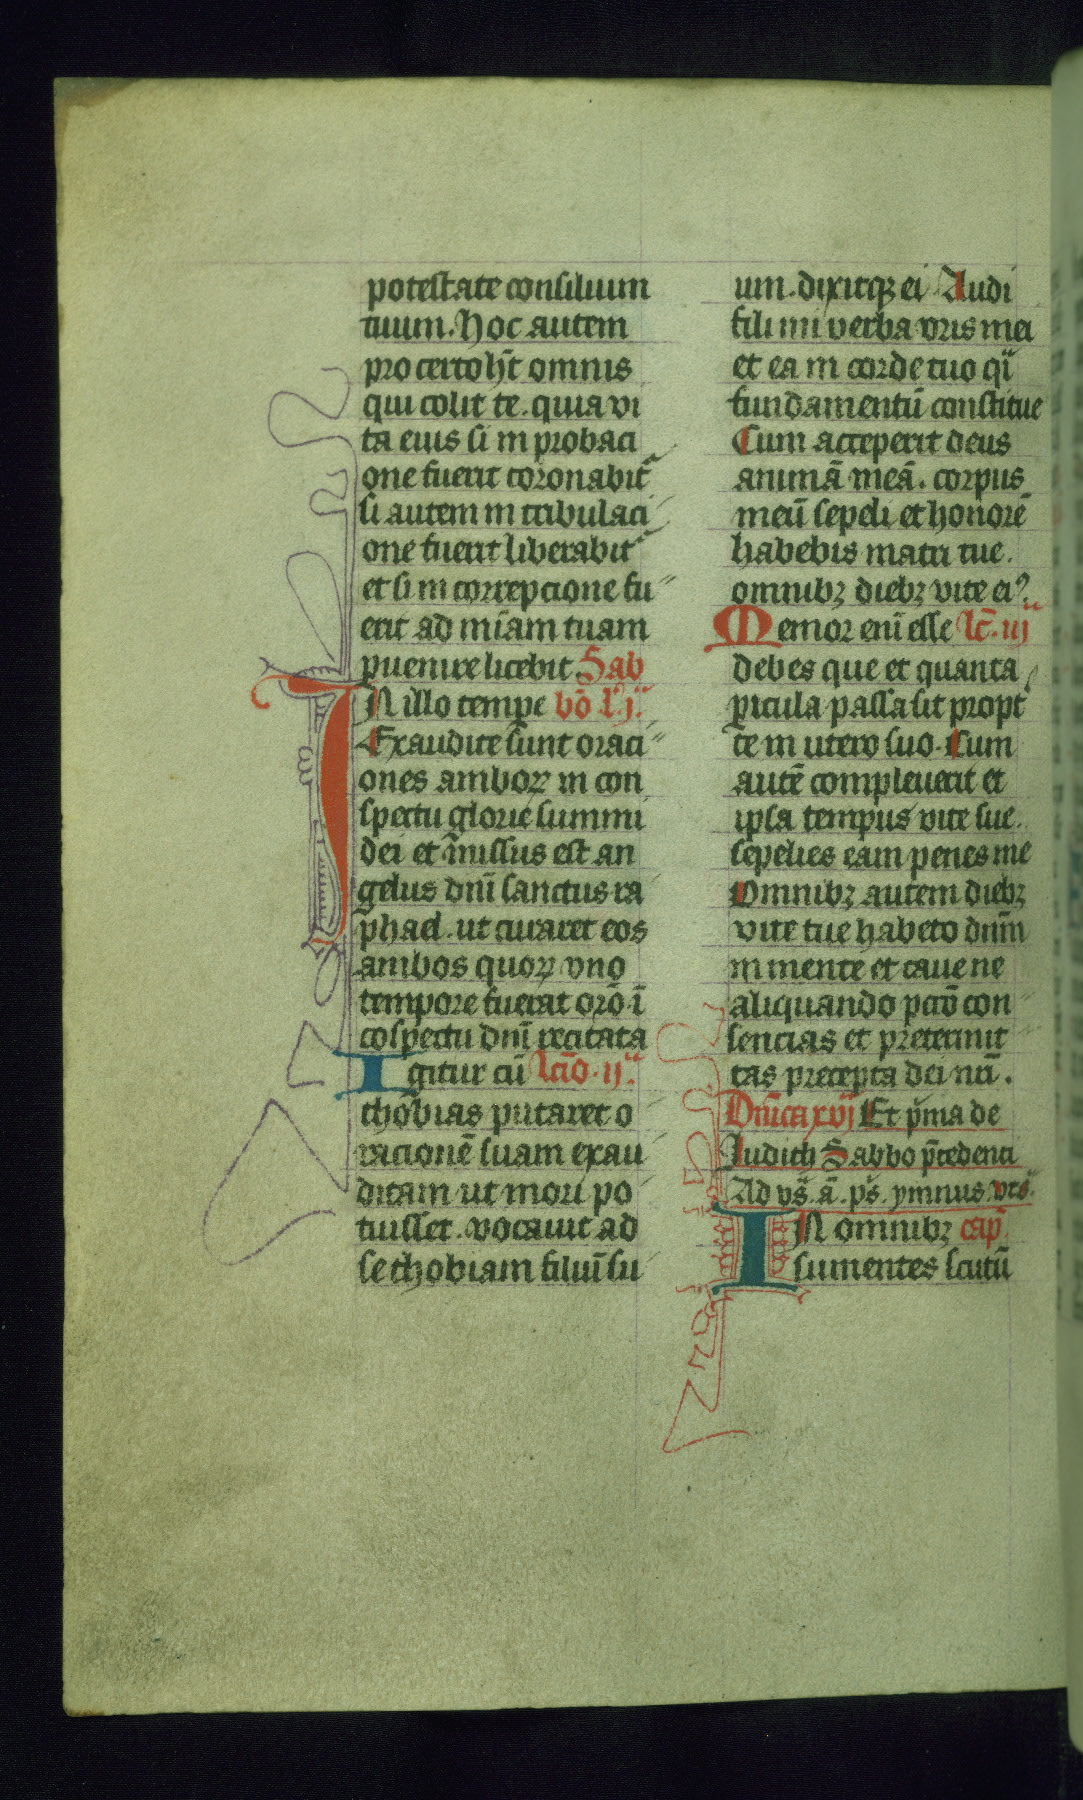 potestate consilium
tuum. Hoc autem
pro certo ht̄ omnis
qui colit te. quia vi
ta eius si in probaci
one fuerit coronabit᷑
si autem in tribulaci
one fuerit liberabit᷑
et si in correpcione fu
erit ad mīam tuam
ꝑuenire licebit Sab
IN illo tempe bo̅ l. j.
Exaudite sunt oraci
ones amboꝝ in con
spectu glorie summi
dei et missus est an
gelus dnī sanctus ra
phael. ut curaret eos
ambos quoꝝ vno
tempore fuerat orō ī
cōspectu dnī recitata
Igitur cū lcīo. ij.
thobias putaret o
racionē suam exau
ditam ut mori po
tuisset. vocauit ad
se thobiam filiuī su
um. dixitqꝫ ei Audi
fili mi verba oris mei
et ea in corde tuo qͣi
fundamentū constitue
Cum acceperit deus
animā meā. corpus
meū sepeli et honorē
habebis matri tue.
omnibꝫ diebꝫ vite eiꝰ.
Memor enī esse lc̄. iij
debes que et quanta
ꝑicula passa sit propt
te in utero suo. Cum
autē compleuerit et
ipsa tempus vite sue.
sepelies eam penes me
Omnibꝫ autem diebꝫ
vite tue habeto dnm̄
in mente et caue ne
aliquando pctō con
sencias et pretermit
tas precepta dei nrī.
Dnīca xvj Et pͥma de
Iudith Sabbo p̄cedenti
Ad vs̄. ā. ps̄. ymnus. vts̄.
IN omnibꝫ cap.
sumentes scutū